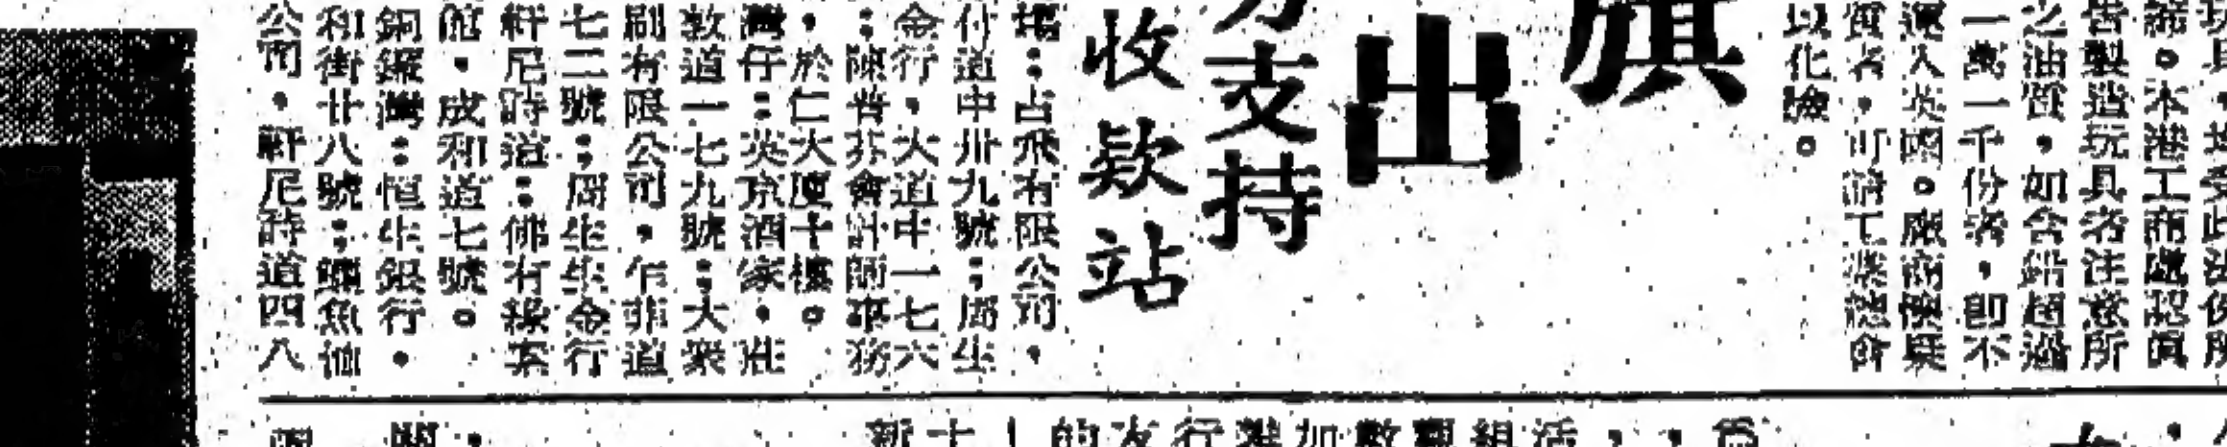 玩具，
諦。本港工商處認眞
告製造玩具者注意所
之油質，如含鉛超過
一萬一千份者，卽不
運入英國。廠商懷疑
質者，可請工業總會
以化驗。
旗
出
支持
收欵站
場：占飛有限公司，
付道中卅九號；周生
金行，大道中一七六
：陳普芬會計師事務
，於仁大厦十樓。
灣仔：英京酒家，莊
敦道一七九號；大衆
刷有限公司，乍菲道
七二號；周生生金行
軒尼詩道；佛有緣素
館，成和道七號。
銅鑼灣：恒生銀行，
和街廿八號；鱷魚恤
公司，軒尼詩道四八
的友行 加數觀組活，，爲